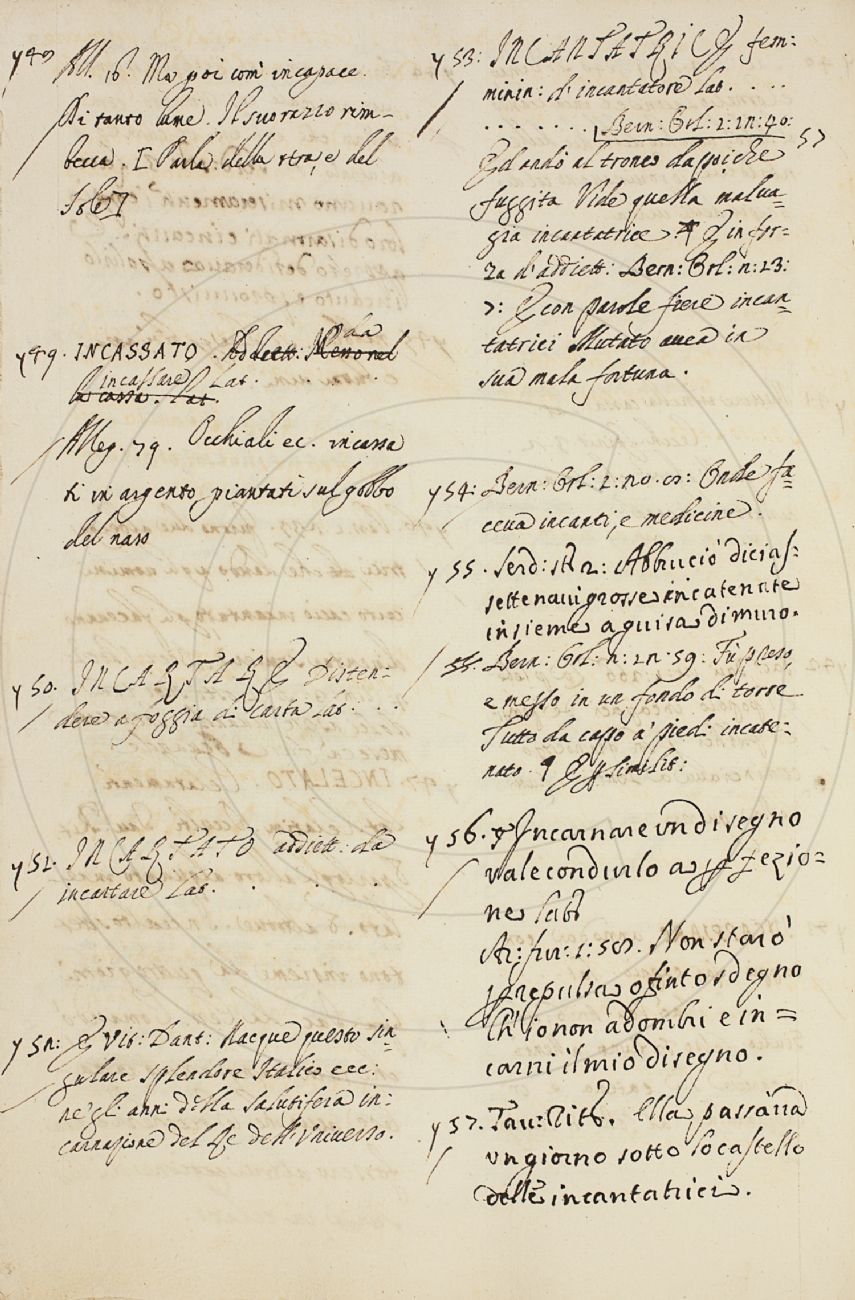 y 48
All. 18. Ma poi com' incapace.
Di tanto lume. Il suo razzo rim-
becca. [Parla della stra, e del
Sole]
y 49. INCASSATO. Addiett. Meno nel da
la cassa. Lat. incassare Lat. . .
Alleg. 79. Occhiali ec. incassa
ti in argento, piantati sul gobbo
del naso
y 50. INCARTARE Disten-
dere a foggia di carta Lat. . .
y 51. INCARTATO addiett: da
incartare Lat. . . .
y 52: E Vit: Dant: Nacque questo sin
gulare splendore Italico ecc:
ne gli anni della salutifera in:
carnazione del Re dell'Universo.
y 53: INCANTATRICE fem:
minin: d'incantatore Lat. . . .
. . . . . . . Bern: Orl: 1: 1n: 40: 57
Ed andò al tronco da ppiche
fuggita Vide quella malua=
gia incantatrice E in for=
za d'addiett: Bern: Orl: n: 13:
7: E con parole fiere incan=
tatrici Mutato avea in
sua mala fortuna.
y 54: Bern: Orl: 1: n0. Onde fa=
ceva incanti, e medicine.
y 55. Serd: st: 2: Abbruciò dicias=
sette navi grosse incatenate
insieme a guisa di muro.
Bern: Orl: n: 1n: 59: Fù preso,
e messo in un fondo di torre
Tutto da capo a' piedi incate=
nato. E simili:
y 56. Incarnare un disegno
vale condurlo a pfezio=
ne lat
Ar: fur: 1: Non starò
p repulsa o finto sdegno
Ch'io non adombri e in=
carni il mio disegno.
y 57. Tav: Rit. Ella passava
un giorno sotto lo castello
delle incantatrici.